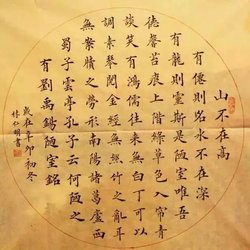 山不在高
有僊則名水不在深
有龍則靈斯是陋室唯吾
德馨苔痕上階綠草色入帘青
談笑有鴻儒往來無白丁可以
調素琴閱金經無絲竹之亂耳
無案牘之勞形南陽諸葛廬西
蜀子雲亭孔子云何陋之
有劉禹錫陋室銘
歲在辛卯初冬
仁明書